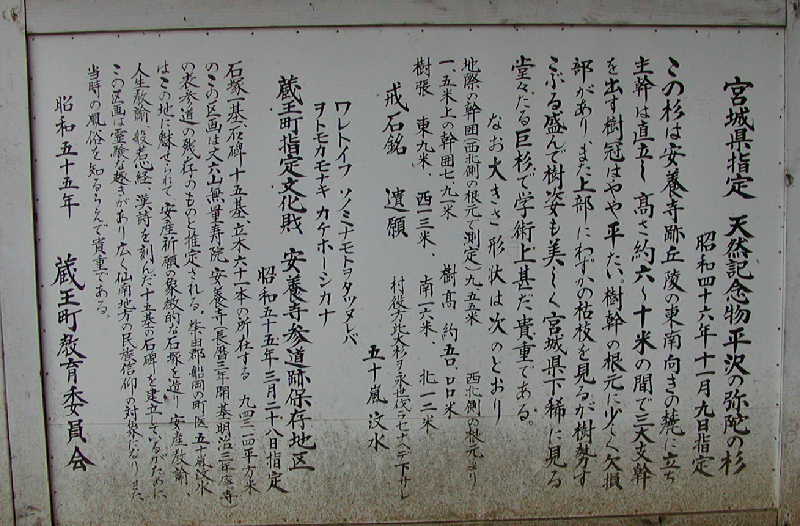 宮城県指定 天然記念物平沢の弥陀の杉
昭和四十六年十一月九日指定
この杉は安養寺跡丘陵の東南向きの麓に立ち
主幹は直立し高さ約六〜十米の間で三大支幹
を出す樹冠はやや平たい。樹幹の根元に少しく欠損
部があり、また上部にわずかの枯枝を見るが樹勢す
こぶる盛んで樹姿も美しく宮城県下稀に見る
堂々たる巨杉で学術上甚だ貴重である。
なお大きさ形状は次のとおり
地際の幹囲(西北側の根元で測定)九、五五米 西北側の根元より
一、五米上の幹囲七、九一米 樹高 約五〇、〇〇米
樹張 東九米、西一三米、南一六米 北一二米
戒石銘 遺願 村役方此大杉ヲ永世伐ラセナヘデ下サレ
五十嵐汶水
ワレトイフ ソノミナモトヲタツヌレバ
ヲトモカモナキ カケホーシカナ
蔵王町指定文化財 安養寺参道跡保存地区
昭和五十五年三月二十八日指定
石塚一基石碑十五基立木六十一本の所在する 九四二〇平方米
のこの区画は丈六山無量寿院安養寺(長暦三年開基明治三年廃寺)
の表参道の残存のものと推定される。柴田郡船岡の町医五十嵐汶水
はこの地に魅せられて安産祈願の象徴的な石塚を造り 安産教諭、
人生教諭、般若心経、漢詩を刻んだ十五基の石碑を建立しているがために
この区画は霊験な趣きがあり広く仙南地方の民族信仰の対象になりまた
当時の風俗を知るうえで貴重である。
昭和五十五年 蔵王町教育委員会